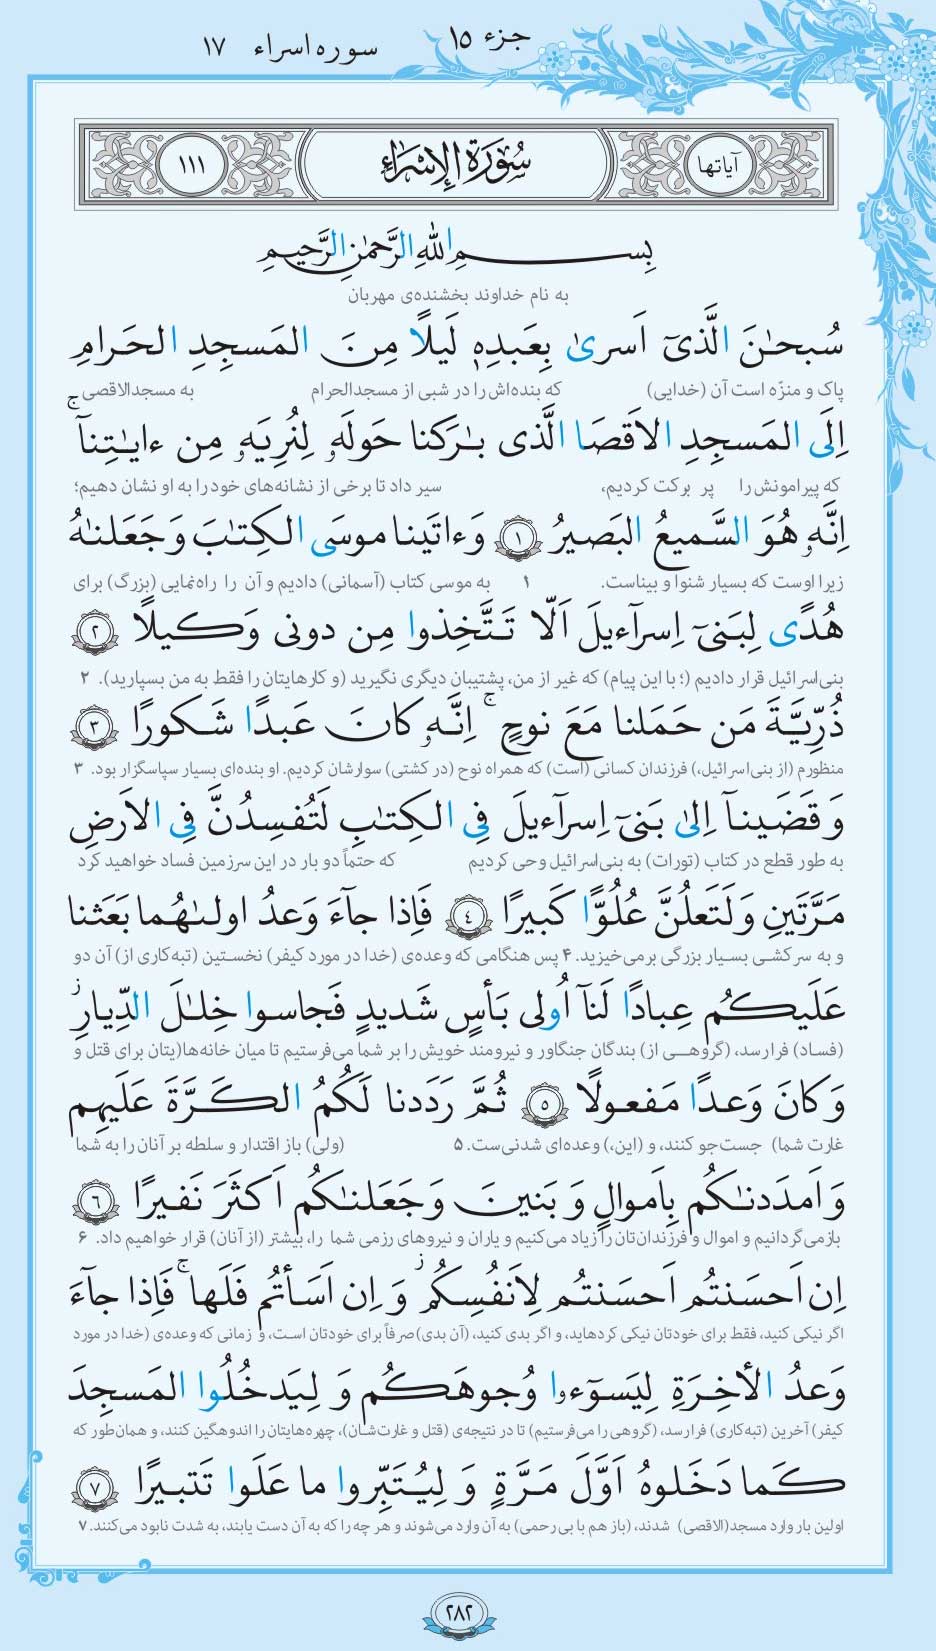 جزء ۱۵
سوره اسراء ۱۷
آیاتها
سُورَةُ الإِسْرَاءِ
۱۱۱
بِسمِ اللهِ الرَّحمٰنِ الرَّحیمِ
به نام خداوند بخشنده‌ی مهربان
سُبحٰنَ الَّذیٓ اَسریٰ بِعَبدِهٖ لَیلًا مِنَ المَسجِدِ الحَرامِ
پاک و منزّه است آن (خدایی) که بنده‌اش را در شبی از مسجدالحرام به مسجدالاقصی
اِلَی المَسجِدِ الاَقصَا الَّذی بٰرَکنا حَولَهٗ لِنُرِیَهٗ مِن ءایٰتِنآ ۚ
که پیرامونش را پر برکت کردیم، سیر داد تا برخی از نشانه‌های خود را به او نشان دهیم؛
اِنَّهٗ هُوَ السَّمیعُ البَصیرُ ۱ وَ ءاتَینا موسَی الکِتٰبَ وَ جَعَلنٰهُ
زیرا اوست که بسیار شنوا و بیناست. ۱ به موسی کتاب (آسمانی) دادیم و آن را راه‌نمایی (بزرگ) برای
هُدًی لِبَنیٓ اِسرآءیلَ اَلّا تَتَّخِذوا مِن دونی وَکیلًا ۲
بنی‌اسرائیل قرار دادیم (؛ با این پیام) که غیر از من، پشتیبان دیگری نگیرید (و کارهایتان را فقط به من بسپارید). ۲
ذُرِّیَّةَ مَن حَمَلنا مَعَ نوحٍ ۚ اِنَّهٗ کانَ عَبدًا شَکورًا ۳
منظورم (از بنی‌اسرائیل،) فرزندان کسانی (است) که همراه نوح (در کشتی) سوارشان کردیم. او بنده‌ای بسیار سپاسگزار بود. ۳
وَ قَضَینآ اِلیٰ بَنیٓ اِسرآءیلَ فِی الکِتٰبِ لَتُفسِدُنَّ فِی الاَرضِ
به طور قطع در کتاب (تورات) به بنی‌اسرائیل وحی کردیم که حتماً دو بار در این سرزمین فساد خواهید کرد
مَرَّتَینِ وَ لَتَعلُنَّ عُلُوًّا کَبیرًا ٤ فَاِذا جآءَ وَعدُ اولىٰهُما بَعَثنا
و به سرکشی بسیار بزرگی برمی‌خیزید. ۴ پس هنگامی که وعده‌ی (خدا در مورد کیفر) نخستین (تبه‌کاری از) آن دو
عَلَیکُم عِبادًا لَنآ اُولی بَأسٍ شَدیدٍ فَجاسوا خِلٰلَ الدِّیارِ ۚ
(فساد) فرارسد، (گروهی از) بندگان جنگاور و نیرومند خویش را بر شما می‌فرستیم تا میان خانه‌ها(یتان برای قتل و
وَ کانَ وَعدًا مَفعولًا ۵ ثُمَّ رَدَدنا لَکُمُ الکَرَّةَ عَلَیهِم
غارت شما) جست‌جو کنند، و (این،) وعده‌ای شدنی‌ست. ۵ (ولی) باز اقتدار و سلطه بر آنان را به شما
وَ اَمدَدنٰکُم بِاَموالٍ وَ بَنینَ وَ جَعَلنٰکُم اَکثَرَ نَفیرًا ٦
بازمی‌گردانیم و اموال و فرزندان‌تان را زیاد می‌کنیم و یاران و نیروهای رزمی شما را، بیشتر (از آنان) قرار خواهیم داد. ۶
اِن اَحسَنتُم اَحسَنتُم لِاَنفُسِکُم ۖ وَ اِن اَسَأتُم فَلَها ۚ فَاِذا جآءَ
اگر نیکی کنید، فقط برای خودتان نیکی کرده‌اید، و اگر بدی کنید، (آن بدی) صرفاً برای خودتان است، و زمانی که وعده‌ی (خدا در مورد
وَعدُ الأخِرَةِ لِیَسوٓءوا وُجوهَکُم وَ لِیَدخُلُوا المَسجِدَ
کیفر) آخرین (تبه‌کاری) فرارسد، (گروهی را می‌فرستیم) تا در نتیجه‌ی (قتل و غارت‌شان)، چهره‌هایتان را اندوهگین کنند، و همان‌طور که
کَما دَخَلوهُ اَوَّلَ مَرَّةٍ وَ لِیُتَبِّروا ما عَلَوا تَتبیرًا ۷
اولین بار وارد مسجد(الاقصی) شدند، (باز هم با بی‌رحمی) به آن وارد می‌شوند و هر چه را که به آن دست یابند، به شدت نابود می‌کنند. ۷
۲۸۲